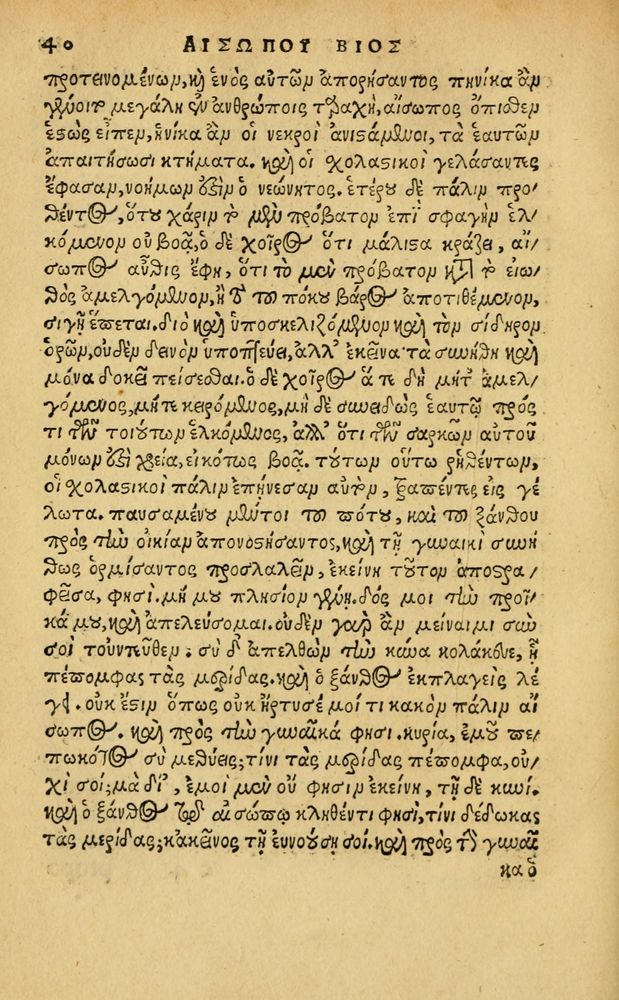 40 ΑΙΣΩΠΟΥ ΒΙΟΣ
προτεινομένων, καὶ ἑνὸς αὐτῶν ἀπορήσαντος πηνίκα ἂν
γένοιτο μεγάλη ἐν ἀνθρώποις ταραχὴ, αἴσωπος ὄπισθεν
ἑστὼς εἶπεν, ἡνίκα ἂν οἱ νεκροὶ ἀνιστάμενοι, τὰ ἑαυτῶν
ἀπαιτήσωσι κτήματα. καὶ οἱ σχολαστικοὶ γελάσαντες
ἔφασαν, νοήμων ἐστὶν ὁ νεώνητος. ἑτέρου δὲ πάλιν προ-
θέντος, ὅτου χάριν τὸ μὲν πρόβατον ἐπὶ σφαγὴν ἑλ-
κόμενον οὐ βοᾷ, ὁ δὲ χοῖρος ὅτι μάλιστα κράζει, αἴ-
σωπος αὖθις ἔφη, ὅτι τὸ μὲν πρόβατον κατὰ τὸ εἰω-
θὸς ἀμελγόμενον, ἢ καὶ τὸ τοῦ πόκου βάρος ἀποτιθέμενον,
σιγῇ ἕπεται. διὸ καὶ ὑποσκελιζόμενον καὶ τὸν σίδηρον
ὁρῶν, οὐδὲν δεινὸν ὑποπτεύει, ἀλλ' ἐκεῖνα τὰ συνήθη καὶ
μόνα δοκεῖ πείσεσθαι. ὁ δὲ χοῖρος ἅτε δὴ μήτ' ἀμελ-
γόμενος, μήτε κειρόμενος, μὴ δὲ συνειδὼς ἑαυτῷ πρός
τι τῶν τοιούτων ἑλκόμενος, ἀλλ' ὅτι τῶν σαρκῶν αὐτοῦ
μόνων ἐστὶ χρεία, εἰκότως βοᾷ. τούτων οὕτω ῥηθέντων,
οἱ σχολαστικοὶ πάλιν ἐπῄνεσαν αὐτὸν, τραπέντες εἰς γέ
λωτα. παυσαμένου μέντοι τοῦ πότου, καὶ τοῦ ξάνθου
πρὸς τὴν οἰκίαν ἀπονοστήσαντος, καὶ τῇ γυναικὶ συνή
θως ὁρμίσαντος προσλαλεῖν, ἐκείνη τοῦτον ἀποστρα-
φεῖσα, φησί. μή μου πλησίον γένῃ. δός μοι τὴν προῖ-
κά μου, καὶ ἀπελεύσομαι. οὐδὲν γὰρ ἂν μείναιμι σὺν
σοὶ τοὐντεῦθεν. σὺ δ' ἀπελθὼν τὴν κύνα κολάκευε, ᾗ
πέπομφας τὰς μερίδας. καὶ ὁ ξάνθος ἐκπλαγεὶς λέ
γει. οὐκ ἔστιν ὅπως οὐκ ἤρτυσέ μοί τι κακὸν πάλιν αἴ
σωπος. καὶ πρὸς τὴν γυναῖκά φησι. κυρία, ἐμοῦ πε-
πωκότος σὺ μεθύεις; τίνι τὰς μερίδας πέπομφα, οὐ-
χὶ σοί; μὰ δί', ἐμοὶ μὲν οὔ φησιν ἐκείνη, τῇ δὲ κυνί.
καὶ ὁ ξάνθος τῷ αἰσώπῳ κληθέντι φησὶ, τίνι δέδωκας
τὰς μερίδας; κἀκεῖνος τῇ εὐνοούσῃ σοι. καὶ πρὸς τὴν γυναῖ
κα ὁ